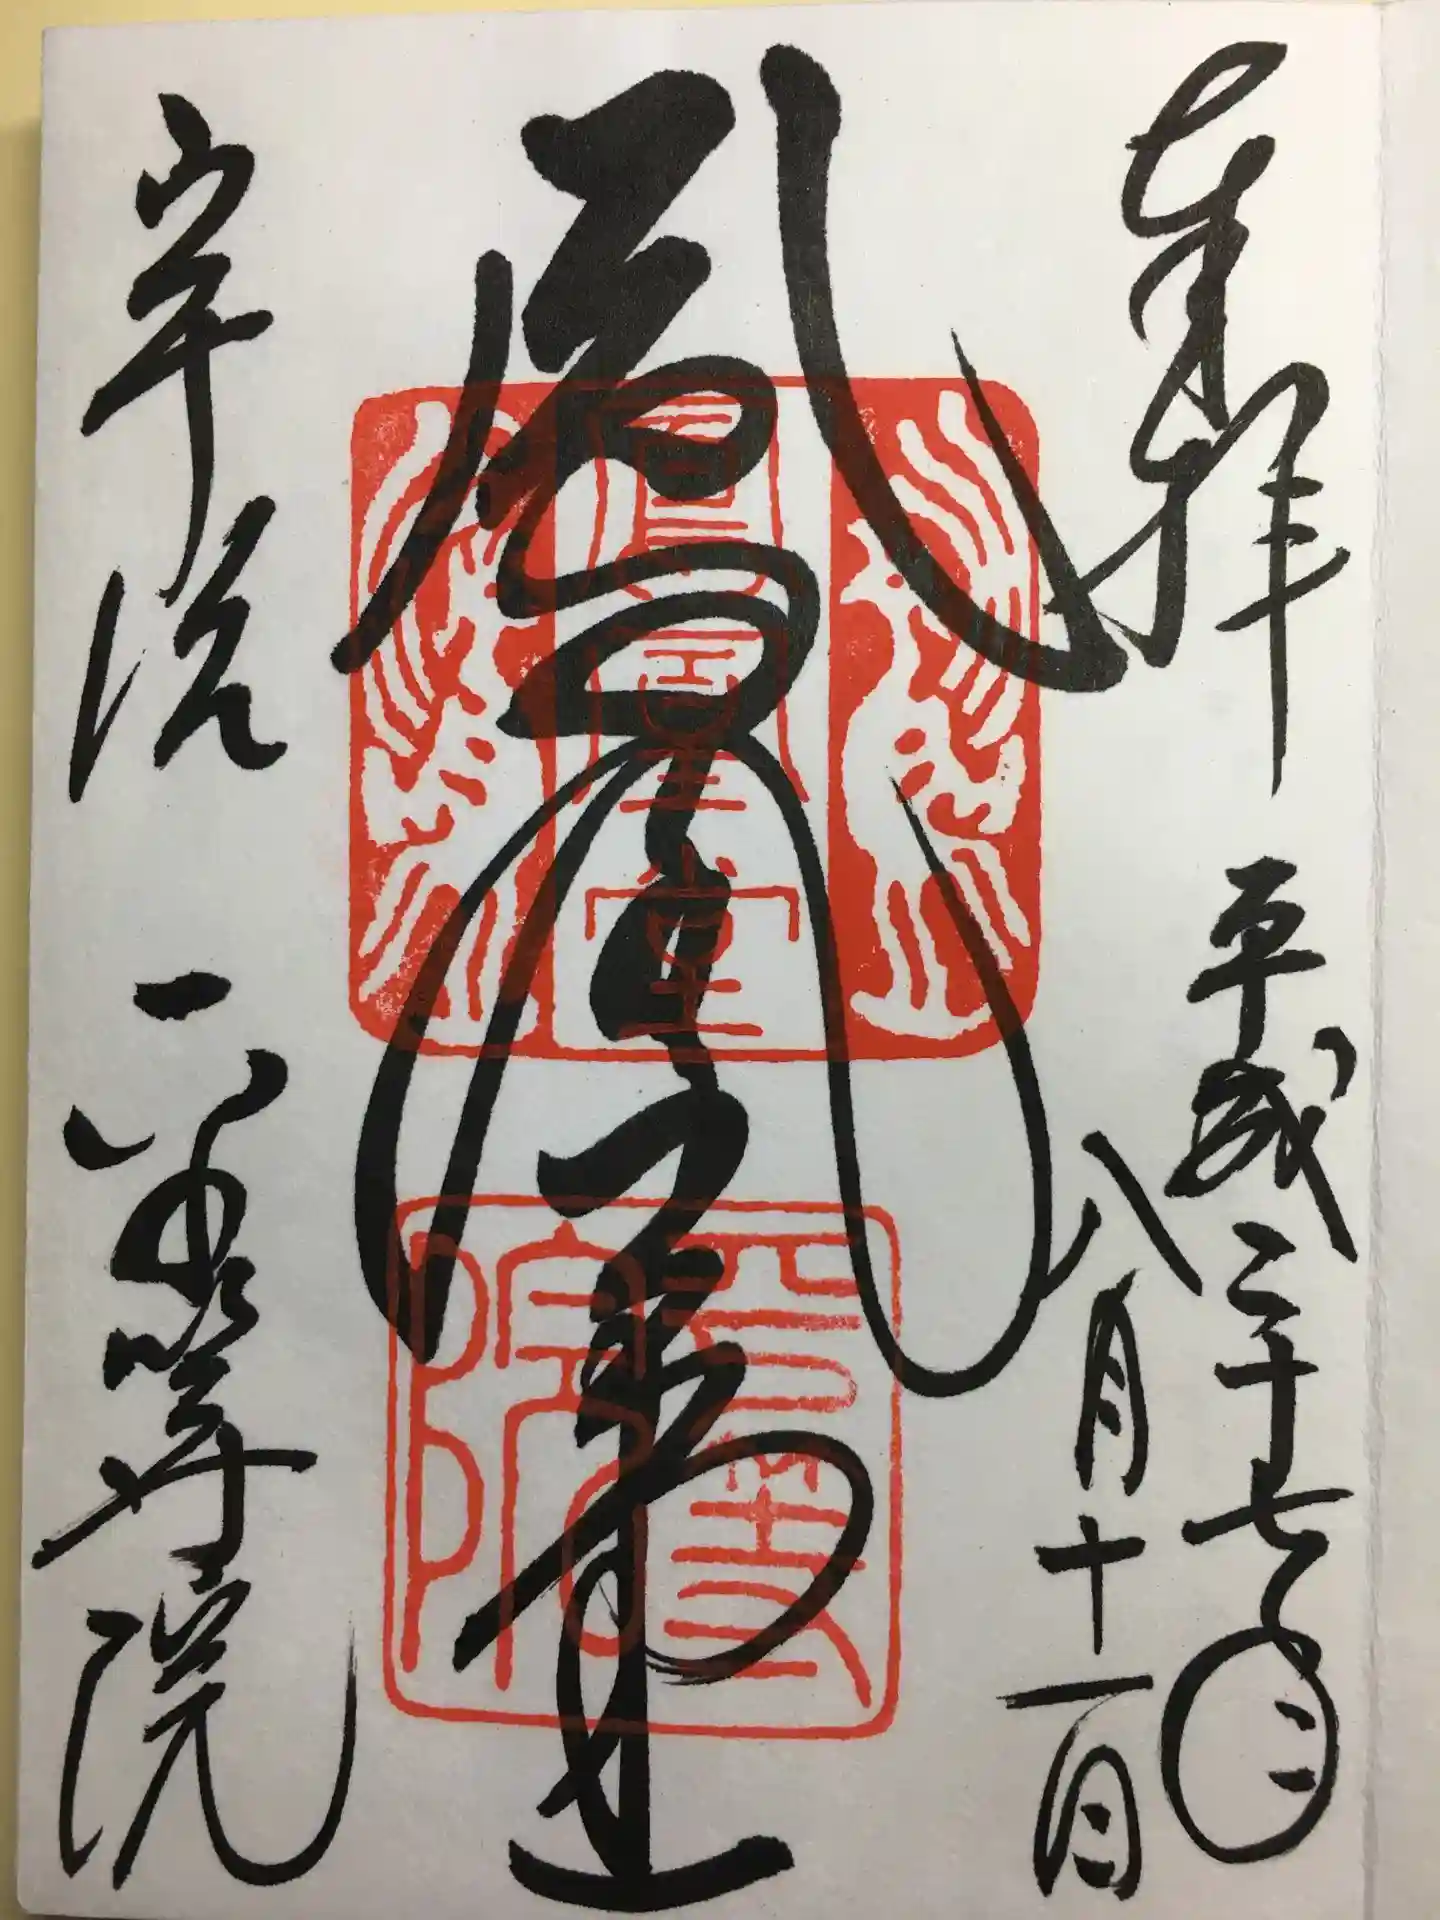 奉拝
平成二十七年
八月十一日
鳳凰堂
鳳凰堂
平等院
宇治 平等院